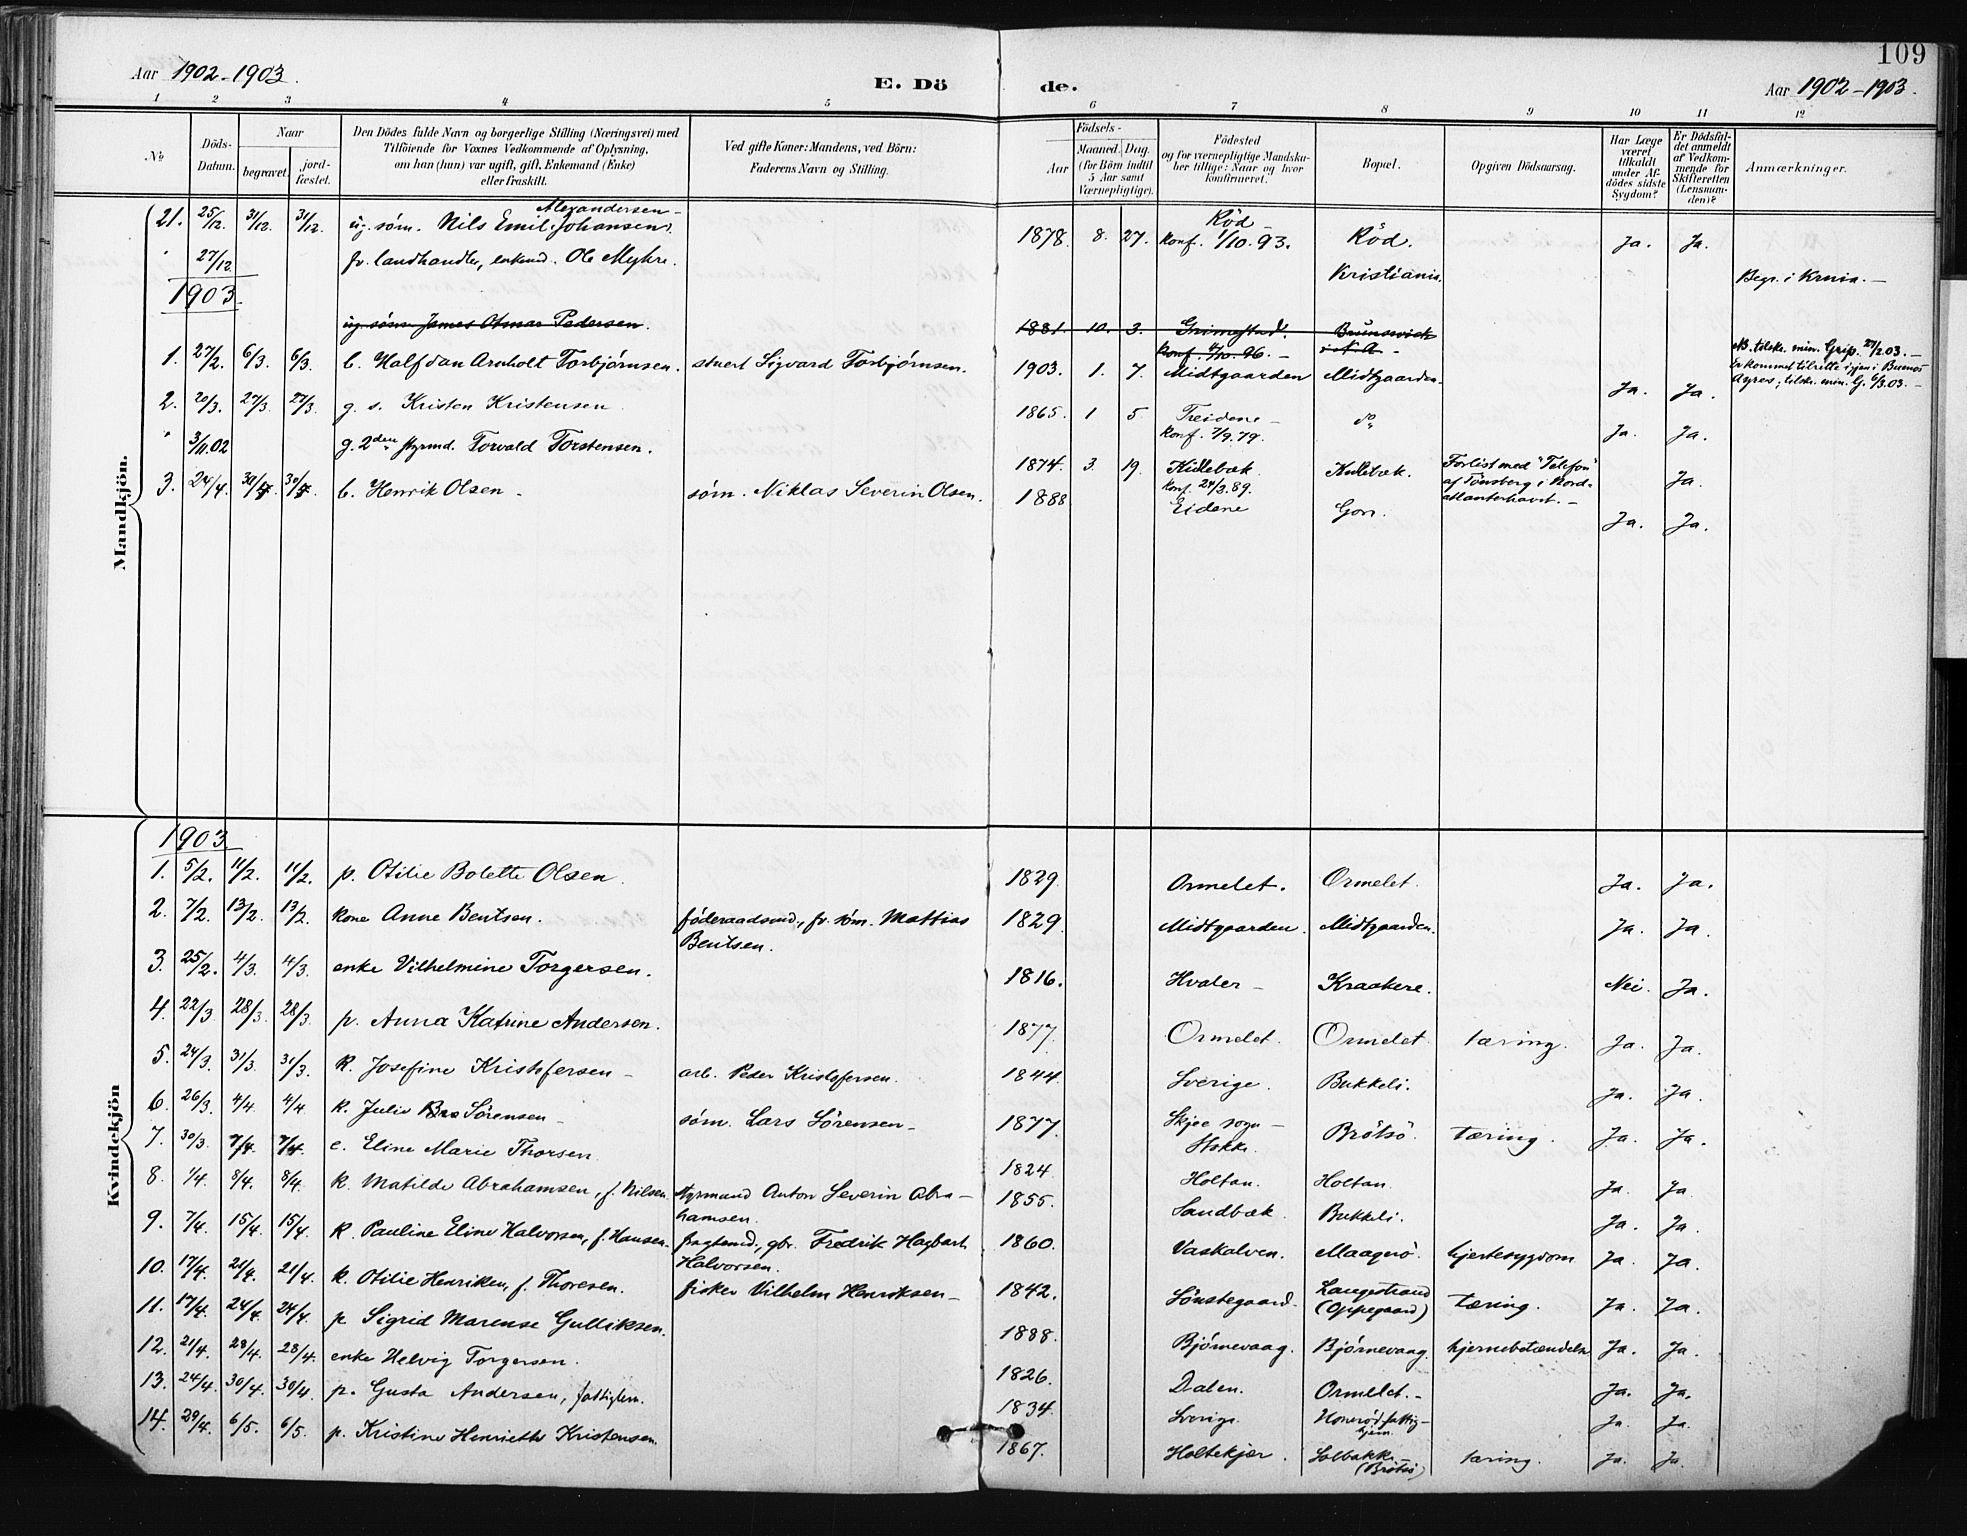 109
Aar 1902-1903.
E. Dö
de.
Aar 1902-1903.
1 2 3 4 5 6 7 8 9 10 11 12
№
Döds-
Datum.
Naar
begravet.
jord-
fæstet.
Den Dödes fulde Navn og borgerlige Stilling (Næringsvei) med
Tilföiende for Voxnes Vedkommende af Oplysning,
om han (hun) var ugift, gift, Enkemand (Enke)
eller fraskilt.
Ved gifte Koner: Mandens, ved Börn:
Faderens Navn og Stilling.
Födsels-
Aar
Maaned. Dag.
(for Börn indtil
5 Aar samt
Værnepligtige).
Födested
og for værnepligtige Mandska-
ber tillige: Naar og hvor
konfirmeret.
Bopæl.
Opgiven Dödsaarsag.
Har Læge
været
tilkaldt
under Af-
dödes sidste
Sygdom?
Er Dödsfil-
det anmeldt
af Vedkom-
mende for
Skifteretten
(Lensman-
den)?
Anmærkninger.
Mandkjön.
Alexandersen
21. 25/12. 31/12. 31/12. ug. søm. Nils Emil Johansen. 1878. 8. 27. Rød - Rød. Ja. Ja.
konf. 1/10.93.
" 27/12 fv. landhandler, enkemd. Ole Myhre. Kristiania. Begr. i Krnia. -
1903.
ug. søm. James Otmar Pedersen. 1881. 10. 3. Grimestad. Brunswick
konf. 4/10.96. - i N. A. -
1. 27/2. 6/3. 6/3. b. Halfdan Arnholt Torbjørnsen. stuert Sigvard Torbjørnsen. 1903. 1. 7. Midtgaarden Midtgaarden. Ja. Ja.
NB. tilskr. min. Grip. 27/2.03. -
Er kommet tilrette igjen i Buenos
Ayres; tilskr. min. G. 6/3.03. -
2. 20/3. 27/3. 27/3. g. s. Kristen Kristensen 1865. 1 5. Treidene - do Ja. Ja.
konf. 7/9.79.
" 3/11.02 g. 2den styrmd. Torvald Torstensen. 1874. 3. 19. Kullebæk. Kullebæk. Forlist med "Telefon" Ja.
konf. 24/3.89. af Tønsberg i Nord-
atlanterhavet. -
3. 24/4. 30/4. 30/4. b. Henrik Olsen - søm. Niklas Severin Olsen. 1888 Eidene Gon. Ja. Ja.
Kvindekjön
1903
1. 5/2. 11/2. 11/2. p. Otilie Bolette Olsen. 1829. Ormelet. Ormelet. Ja. Ja.
2. 7/2. 13/2. 13/2. kone Anne Bentsen. føderaadsmd., fv. søm. Mattias 1829. Midtgaarden. Midtgaarden. Ja. Ja.
Bentsen.
3. 25/2. 4/3. 4/3. enke Vilhelmine Torgersen. 1816. Hvaler - Kraakere. Nei. Ja.
4. 22/3. 28/3. 28/3. p. Anna Katrine Andersen. 1877. Ormelet. Ormelet. tæring. Ja. Ja.
5. 24/3. 31/3. 31/3. k. Josefine Kristofersen - arb. Peder Kristofersen. 1844. Sverige. Bukkeli. Ja. Ja.
6. 26/3. 4/4. 4/4. k. Julie Sørensen - søm. Lars Sørensen - 1877. Skjee sogn - Brøtsø. tæring. Ja. Ja.
Stokke.
7. 30/3. 7/4. 7/4. e. Eline Marie Thorsen. 1824. Holtan. Holtan. Ja. Ja.
8. 1/4. 8/4. 8/4. k. Matilde Abrahamsen, f. Nilsen. styrmand Anton Severin Abra- 1855. Sandbæk. Bukkeli. Ja. Ja.
hamsen.
9. 7/4. 15/4. 15/4. k. Pauline Eline Halvorsen, f. Hansen. fragtemd., gbr. Fredrik Hagbart 1860. Vaskalven. Maagerø. hjertesygdom Ja. Ja.
Halvorsen.
10. 17/4. 21/4. 21/4. k. Otilie Henriksen, f. Thoresen. fisker Vilhelm Henriksen - 1842. Sønstegaard. Langestrand tæring. Ja. Ja.
(Oppegaard)
11. 17/4. 24/4. 24/4. p. Sigrid Marense Gulliksen. 1888. Bjørnevaag. Bjørnevaag. hjernebetændelse Ja. Ja.
12. 21/4. 28/4. 28/4. enke Helvig Torgersen. 1826. Dalen. Ormelet. - Ja. Ja.
13. 24/4. 30/4. 30/4. p. Gusta Andersen, fattiglem. 1834. Sverige. fattig- Ja. Ja.
hjem.
14. 29/4. 6/5. 6/5. p. Kristine Henriette Kristensen. 1867. Holtekjær. Solbakken tæring. Ja. Ja.
(Brøtsø)